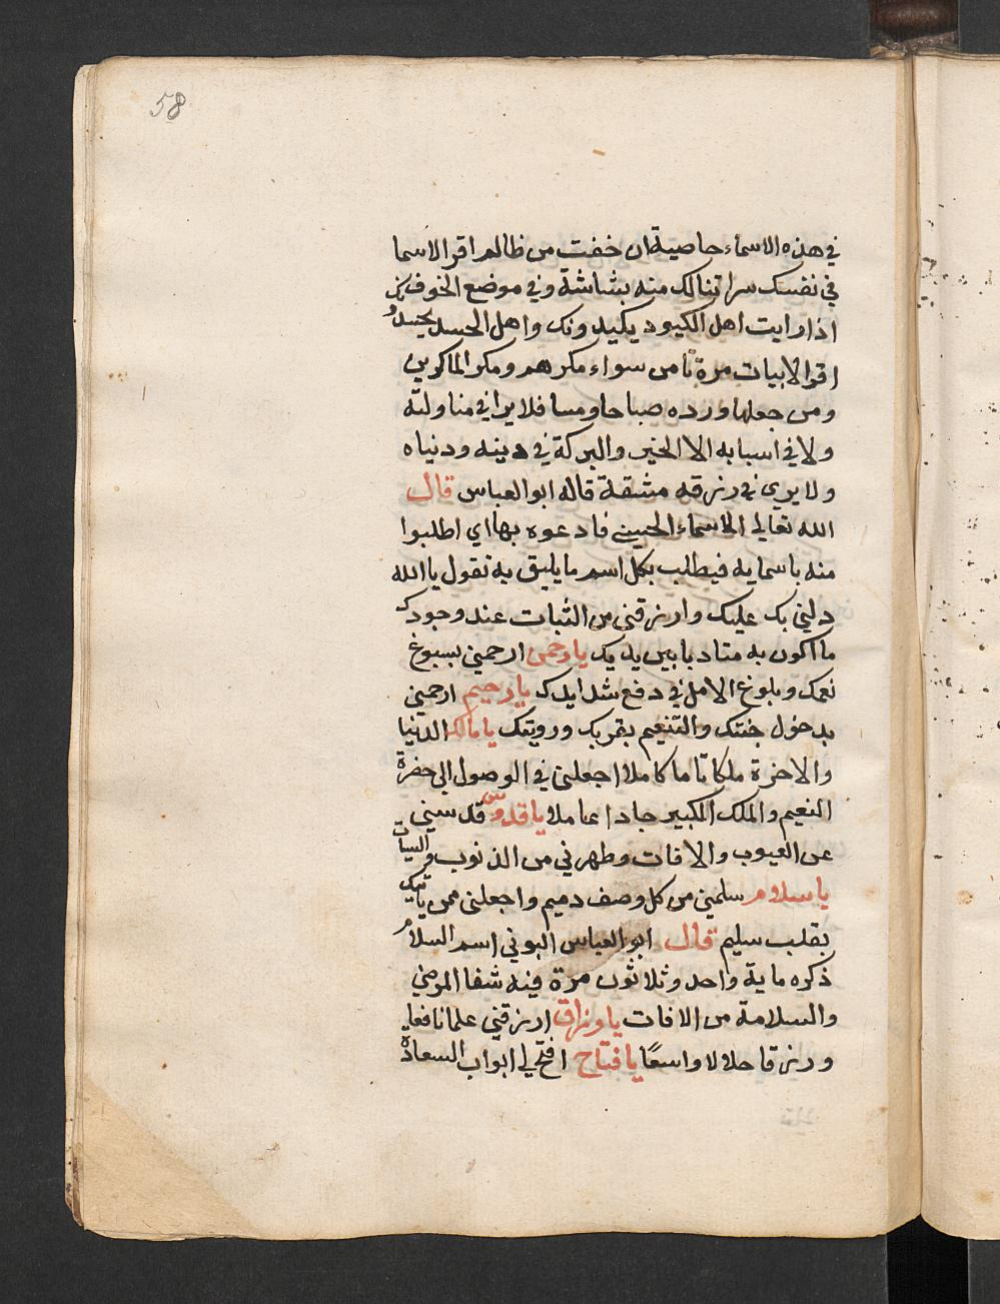 58
في هذه الاسماء حاصية ان خفت من ظالم اقر الاسما
في نفسك سرا تنالك منه بشاشة وفي موضع الخوف
اذا رايت اهل الكيود يكيدونك واهل الحسد يحسدو
اقر الابيات مرة تامن سواء مكرهم ومكر الماكرين
ومن جعلها ورده صباحا ومسا فلا يرا في مناولته
ولا في اسبابه الا الخير والبركة في دينه ودنياه
ولا يري في رزقه مشقة قاله ابو العباس قال
الله تعالي الاسماء الحسني فادعوه بها اي اطلبوا
منه باسمايه فيطلب بكل اسم ما يليق به تقول يا الله
دلني بك عليك وارزقني من الثبات عند وجودك
ما اكون به متادبا بين يديك يا رحمن ارحمني بسبوغ
نعمك وبلوغ الامل في دفع شدايدك يا رحيم ارحمني
بدخول جنتك والتنعيم بقربك ورويتك يا مالك الدنيا
والاخرة ملكا تاما كاملا اجعلني في الوصول الى حضرة
النعيم والملك الكبير جادا عاملا يا قدوس قدسني
عن العيوب والافات وطهرني من الذنوب والسيات
يا سلام سلمني من كل وصف دميم واجعلني ممن ياتيك
بقلب سليم قال ابو العباس البوني اسم السلام
ذكره ماية واحد وثلاثون مرة فيه شفا المرضي
والسلامة من الافات يا رزاق ارزقني علما نافعا
ورزقا حلالا واسعًا يا فتاح افتح لي ابواب السعادة